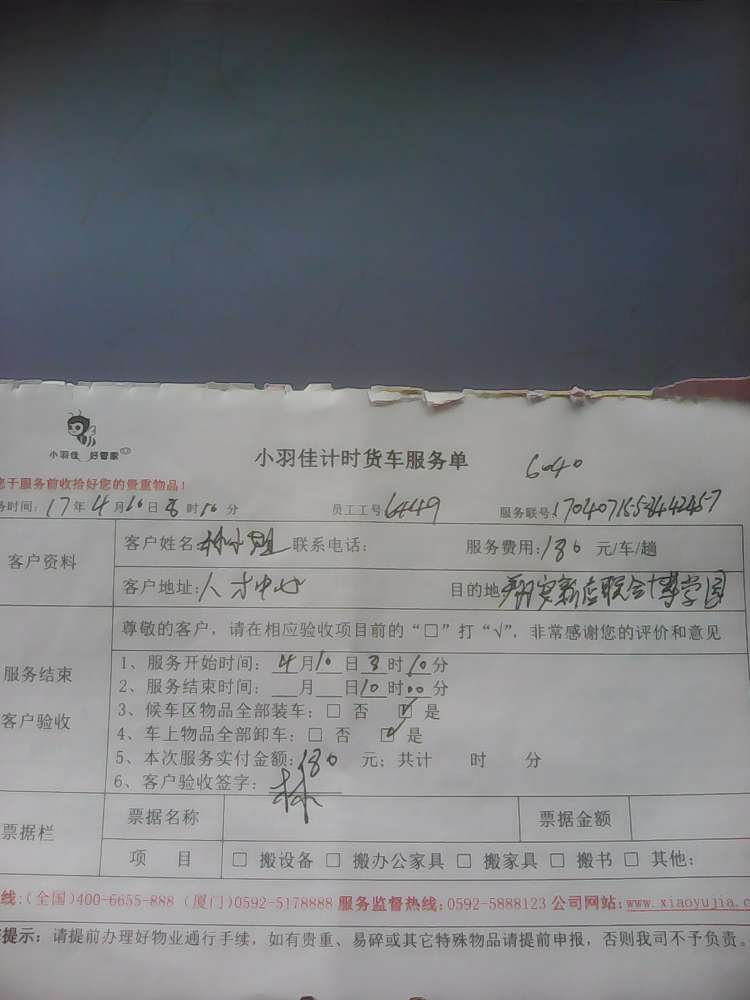 小羽佳 好管家
小羽佳计时货车服务单 6040
于服务前收拾好您的贵重物品！
时间：17年4月10日8时10分 员工工号6449 服务联号：
客户资料 客户姓名： 联系电话： 服务费用：180 元/车/趟
客户地址：人才中心 目的地
尊敬的客户，请在相应验收项目前的“□”打“√”，非常感谢您的评价和意见
服务结束
客户验收
1、服务开始时间：4月10日8时10分
2、服务结束时间：月 日10时00分
3、候车区物品全部装车：□ 否 ☑ 是
4、车上物品全部卸车：□ 否 ☑ 是
5、本次服务实付金额：180 元；共计 时 分
6、客户验收签字：林
票据栏 票据名称 票据金额
项 目 □ 搬设备 □ 搬办公家具 □ 搬家具 □ 搬书 □ 其他：
线：(全国)400-6655-888 (厦门)0592-5178888 服务监督热线：0592-5888123 公司网站：www.xiaoyujia.c
提示：请提前办理好物业通行手续，如有贵重、易碎或其它特殊物品请提前申报，否则我司不予负责。